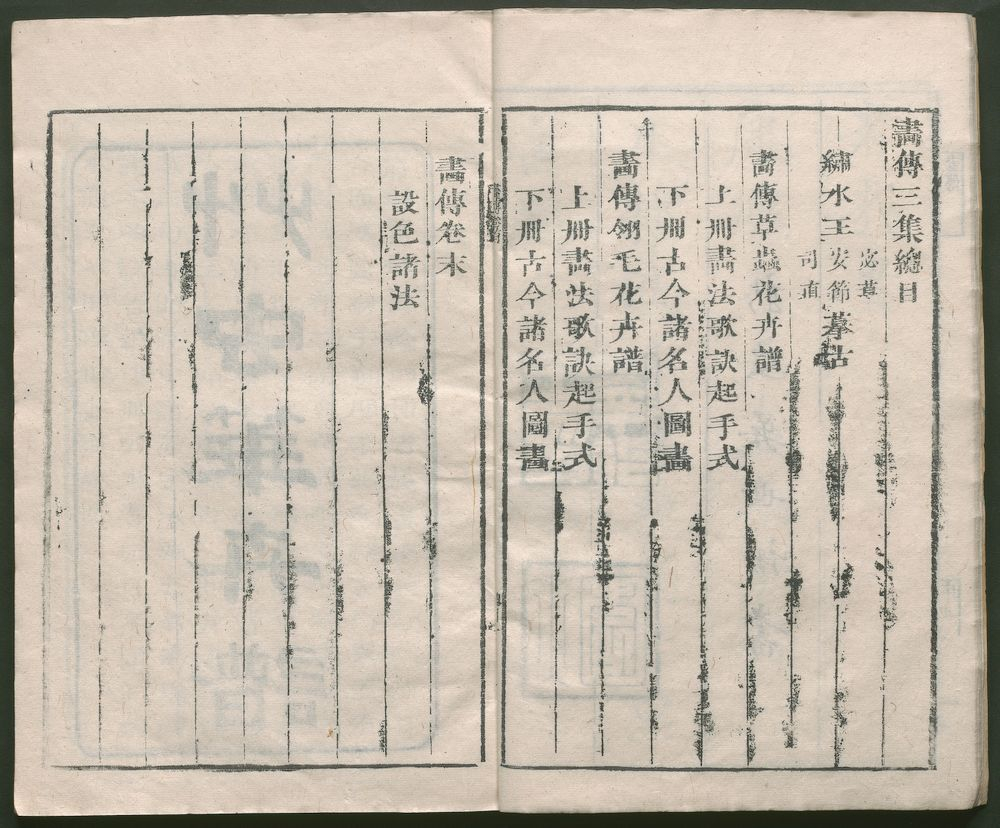 畫傳三集總目
繡水王宓草安節司直摹古
畫傳草蟲花卉譜
上冊畫法歌訣起手式
下冊古今諸名人圖畫
畫傳翎毛花卉譜
上冊畫法歌訣起手式
下冊古今諸名人圖畫
畫傳卷末
設色諸法